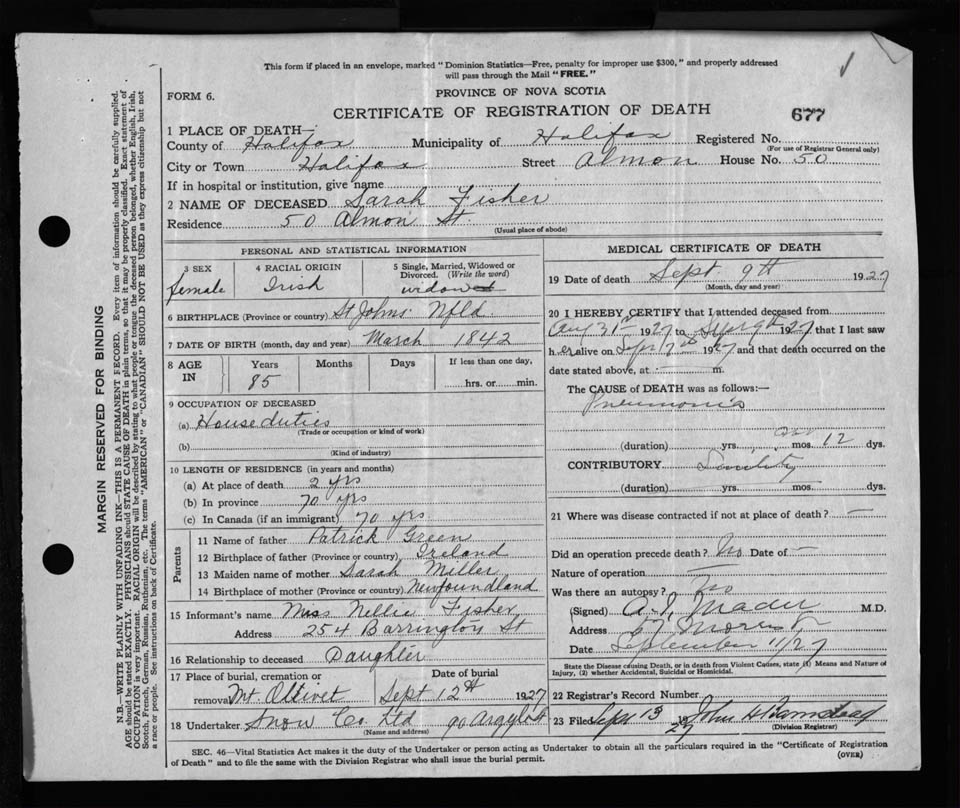 This form if placed in an envelope, marked "Dominion Statistics—Free, penalty for improper use $300," and properly addressed
will pass through the Mail "FREE."
FORM 6.
PROVINCE OF NOVA SCOTIA
CERTIFICATE OF REGISTRATION OF DEATH
677
1 PLACE OF DEATH—
County of Halifax Municipality of Halifax Registered No.
(For use of Registrar General only)
City or Town Halifax Street Almon House No. 50
If in hospital or institution, give name
2 NAME OF DECEASED Sarah Fisher
Residence 50 Almon St
(Usual place of abode)
PERSONAL AND STATISTICAL INFORMATION
3 SEX
female
4 RACIAL ORIGIN
Irish
5 Single, Married, Widowed or
Divorced. (Write the word)
widow
6 BIRTHPLACE (Province or country) St Johns Nfld
7 DATE OF BIRTH (month, day and year) March 1842
8 AGE
IN
Years
85
Months
Days
If less than one day,
hrs. or min.
9 OCCUPATION OF DECEASED
(a) House duties
(Trade or occupation or kind of work)
(b)
(Kind of industry)
10 LENGTH OF RESIDENCE (in years and months)
(a) At place of death 2 yrs
(b) In province 70 yrs
(c) In Canada (if an immigrant) 70 yrs.
Parents
11 Name of father Patrick Green
12 Birthplace of father (Province or country) Ireland
13 Maiden name of mother Sarah Miller
14 Birthplace of mother (Province or country) Newfoundland
15 Informant's name Miss Nellie Fisher
Address 254 Barrington St
16 Relationship to deceased Daughter
17 Place of burial, cremation or
removal Mt. Olivet
Date of burial
Sept 12th 1927
18 Undertaker Snow Co. Ltd 90 Argyle St
(Name and address)
MEDICAL CERTIFICATE OF DEATH
19 Date of death Sept 9th 1927
(Month, day and year)
20 I HEREBY CERTIFY that I attended deceased from
Aug 31st 1927 to Sept 9th 1927 that I last saw
her alive on Sept 7th 1927 and that death occurred on the
date stated above, at — m.
The CAUSE of DEATH was as follows:—
Pneumonia
(duration) yrs. mos. 12 dys.
CONTRIBUTORY Senility
(duration) yrs. mos. dys.
21 Where was disease contracted if not at place of death? —
Did an operation precede death? No Date of —
Nature of operation —
Was there an autopsy? No
(Signed) Mader M.D.
Address 57 Morris St
Date September /27
State the Disease causing Death, or in death from Violent Causes, state (1) Means and Nature of
Injury, (2) whether Accidental, Suicidal or Homicidal.
22 Registrar's Record Number
23 Filed Sept 13 1927 John
(Division Registrar)
SEC. 46—Vital Statistics Act makes it the duty of the Undertaker or person acting as Undertaker to obtain all the particulars required in the "Certificate of Registration
of Death" and to file the same with the Division Registrar who shall issue the burial permit.
(OVER)
MARGIN RESERVED FOR BINDING
N.B.—WRITE PLAINLY, WITH UNFADING INK—THIS IS A PERMANENT RECORD. Every item of information should be carefully supplied.
AGE should be stated EXACTLY. PHYSICIANS should STATE CAUSE OF DEATH in plain terms, so that it may be properly classified. Exact statement of
OCCUPATION is very important. RACIAL ORIGIN will be described by stating to what people or tongue the deceased person belonged, whether English, Irish,
Scotch, French, German, Russian, Ruthenian, etc. The terms "AMERICAN" or "CANADIAN" SHOULD NOT BE USED as they express citizenship but not
a race or people. See instructions on back of Certificate.